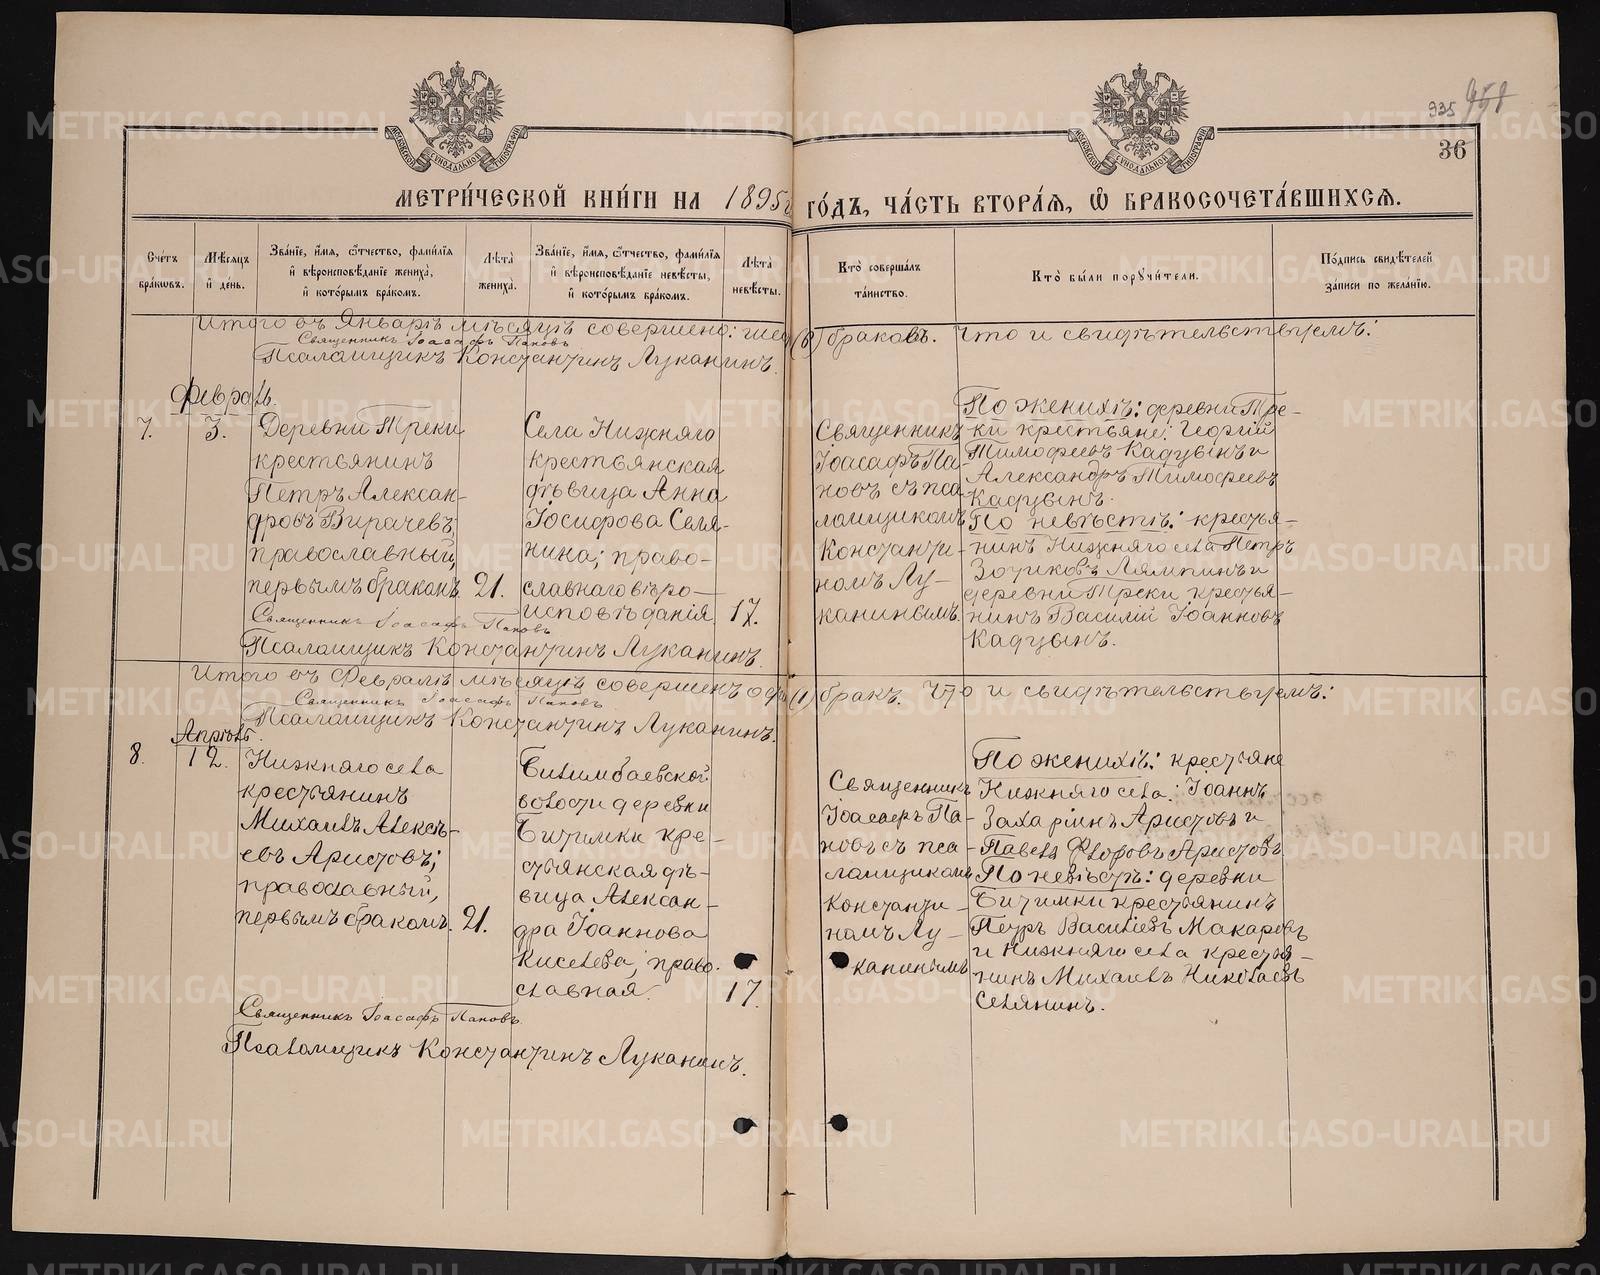 935 958
36
МОСКОВСКОЙ СѴНОДАЛЬНОЙ ТИПОГРАФІИ
МОСКОВСКОЙ СѴНОДАЛЬНОЙ ТИПОГРАФІИ
МЕТРИ́ЧЕСКОЙ КНИ́ГИ НА 1895 г ГО́ДЪ, ЧА́СТЬ ВТОРА́Я, Ѽ БРАКОСОЧЕТА́ВШИХСЯ.
Сче́тъ бра́ковъ.
Мѣ́сяцъ и҆ де́нь.
Зва́нїе, и҆́мя, ѻ҆́тчество, фами́лїѧ и҆ вѣроисповѣ́данїе жениха̀, и҆ кото́рымъ бра́комъ.
Лѣ́та жениха̀.
Зва́нїе, и҆́мя, ѻ҆́тчество, фами́лїѧ и҆ вѣроисповѣ́данїе невѣ́сты, и҆ кото́рымъ бра́комъ.
Лѣ́та невѣ́сты.
Кто̀ соверша́лъ та́инство.
Кто̀ бы́ли порꙋчи́тели.
По́дпись свидѣ́телей за́писи по жела́нїю.
Итого въ Январѣ мѣсяцѣ совершено: шес (6) браковъ. Что и свидѣтельствуемъ:
Священникъ Іоасафъ Пановъ
Псаломщикъ Константинъ Луканинъ.
Февраль.
7.
3.
Деревни Треки
крестьянинъ
Петръ Алексан-
дровъ Вирачевъ,
православный,
первымъ бракомъ.
21.
Села Нижняго
крестьянская
дѣвица Анна
Іосифова Селя-
нина; право-
славнаго вѣро-
исповѣданія
17.
Священникъ
Іоасафъ Па-
новъ съ пса
ломщикомъ
Константи-
номъ Лу-
канинымъ.
По женихѣ: деревни Тре-
ки крестьяне: Георгій
Тимофеевъ Кадувинъ и
Александръ Тимофеевъ
Кадувинъ.
По невѣстѣ: крестья-
нинъ Нижняго села Петръ
Зотиковъ Лямпинъ и
деревни Треки крестья-
нинъ Василій Іоанновъ
Кадувинъ.
Священникъ Іоасафъ Пановъ
Псаломщикъ Константинъ Луканинъ.
Итого въ Февралѣ мѣсяцѣ совершенъ одн (1) бракъ. Что и свидѣтельствуемъ:
Священникъ Іоасафъ Пановъ
Псаломщикъ Константинъ Луканинъ.
Апрѣль.
8.
12.
Нижняго села
крестьянинъ
Михаилъ Алексѣ-
евъ Аристовъ;
православный,
первымъ бракомъ.
21.
Билимбаевской
волости деревни
Битимки кре-
стьянская дѣ-
вица Алексан-
дра Іоаннова
Киселева; право.
славная.
17.
Священникъ
Іоасафъ Па-
новъ съ пса-
ломщикомъ
Константи-
номъ Лу-
канинымъ
По женихѣ: крестьяне
Нижняго села: Іоаннъ
Захаріинъ Аристовъ и
Павелъ Флоровъ Аристовъ
По невѣстѣ: деревни
Битимки крестьянинъ
Петръ Василіевъ Макаровъ
и Нижняго села крестья-
нинъ Михаилъ Николаевъ
Селянинъ.
Священникъ Іоасафъ Пановъ
Псаломщикъ Константинъ Луканинъ.
METRIKI.GASO-URAL.RU